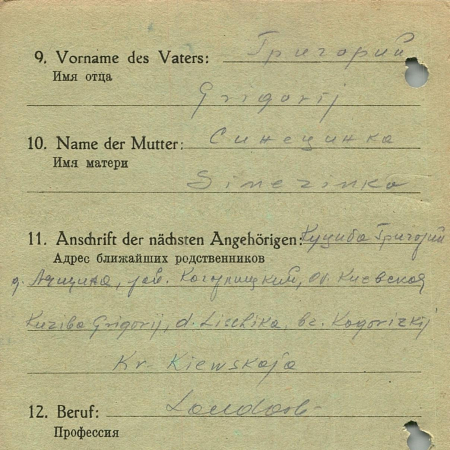 9. Vorname des Vaters: Григорий
Имя отца
Grigorij
10. Name der Mutter: Синецинка
Имя матери
Sinezinka
11. Anschrift der nächsten Angehörigen: Куциба Григорий
Адрес ближайших родственников
д. Лищина, ов. Киевская
Kuziba Grigorij, d. Lischika, bez. Kagorizkij
Kr. Kiewskaja
12. Beruf:
Профессия